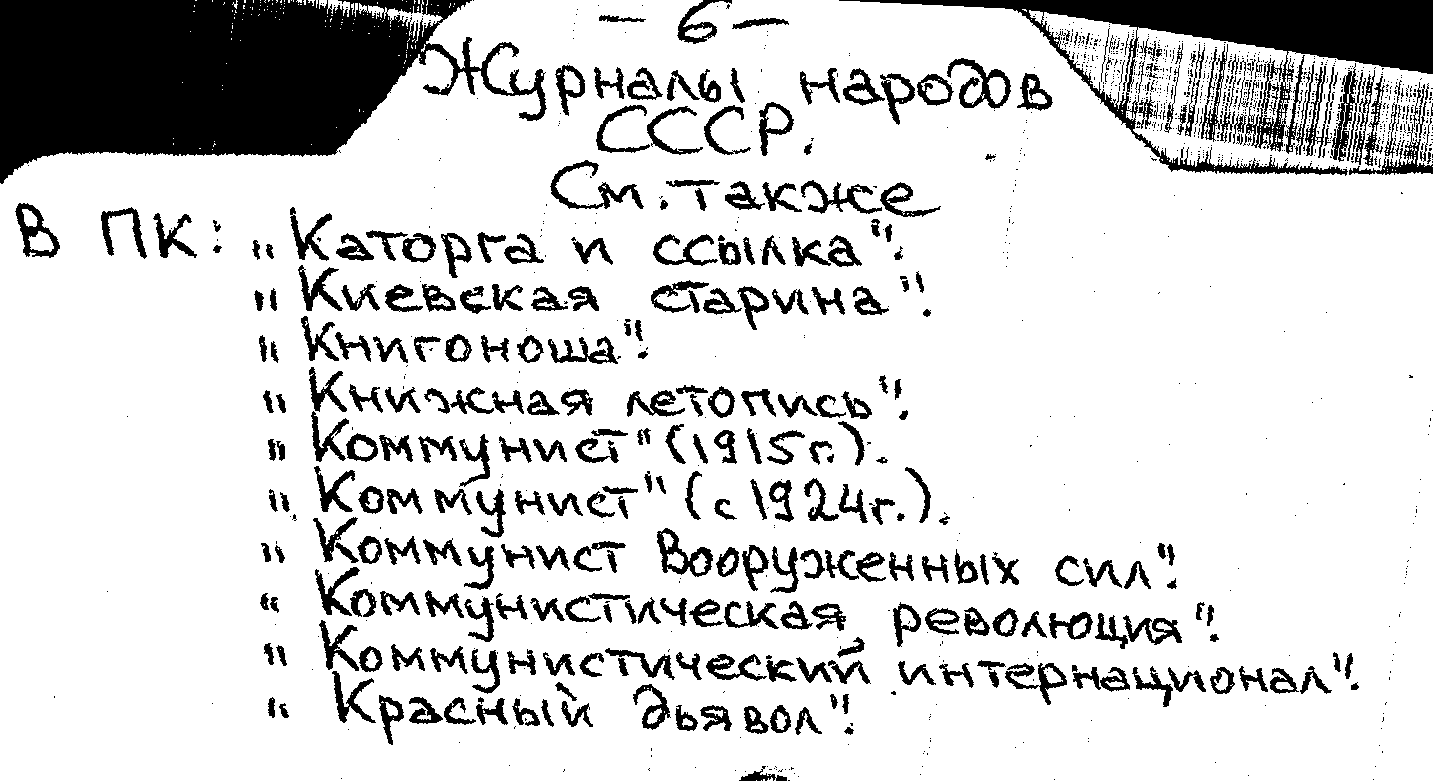 — 6 —
Журналы народов
СССР.
См. также
В ПК: „Каторга и ссылка".
„Киевская старина".
„Книгоноша".
„Книжная летопись".
„Коммунист" (1915 г.).
„Коммунист" (с 1924 г.).
„Коммунист Вооруженных сил".
„Коммунистическая революция".
„Коммунистический интернационал".
„Красный дьявол".